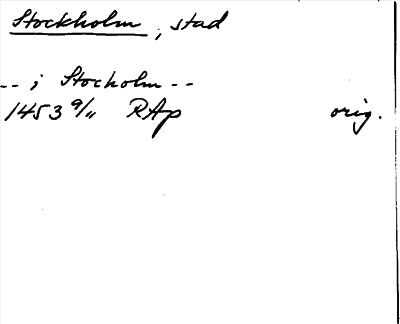 Stockholm, stad
-- i Stocholm --
1453 9/11 RAp orig.